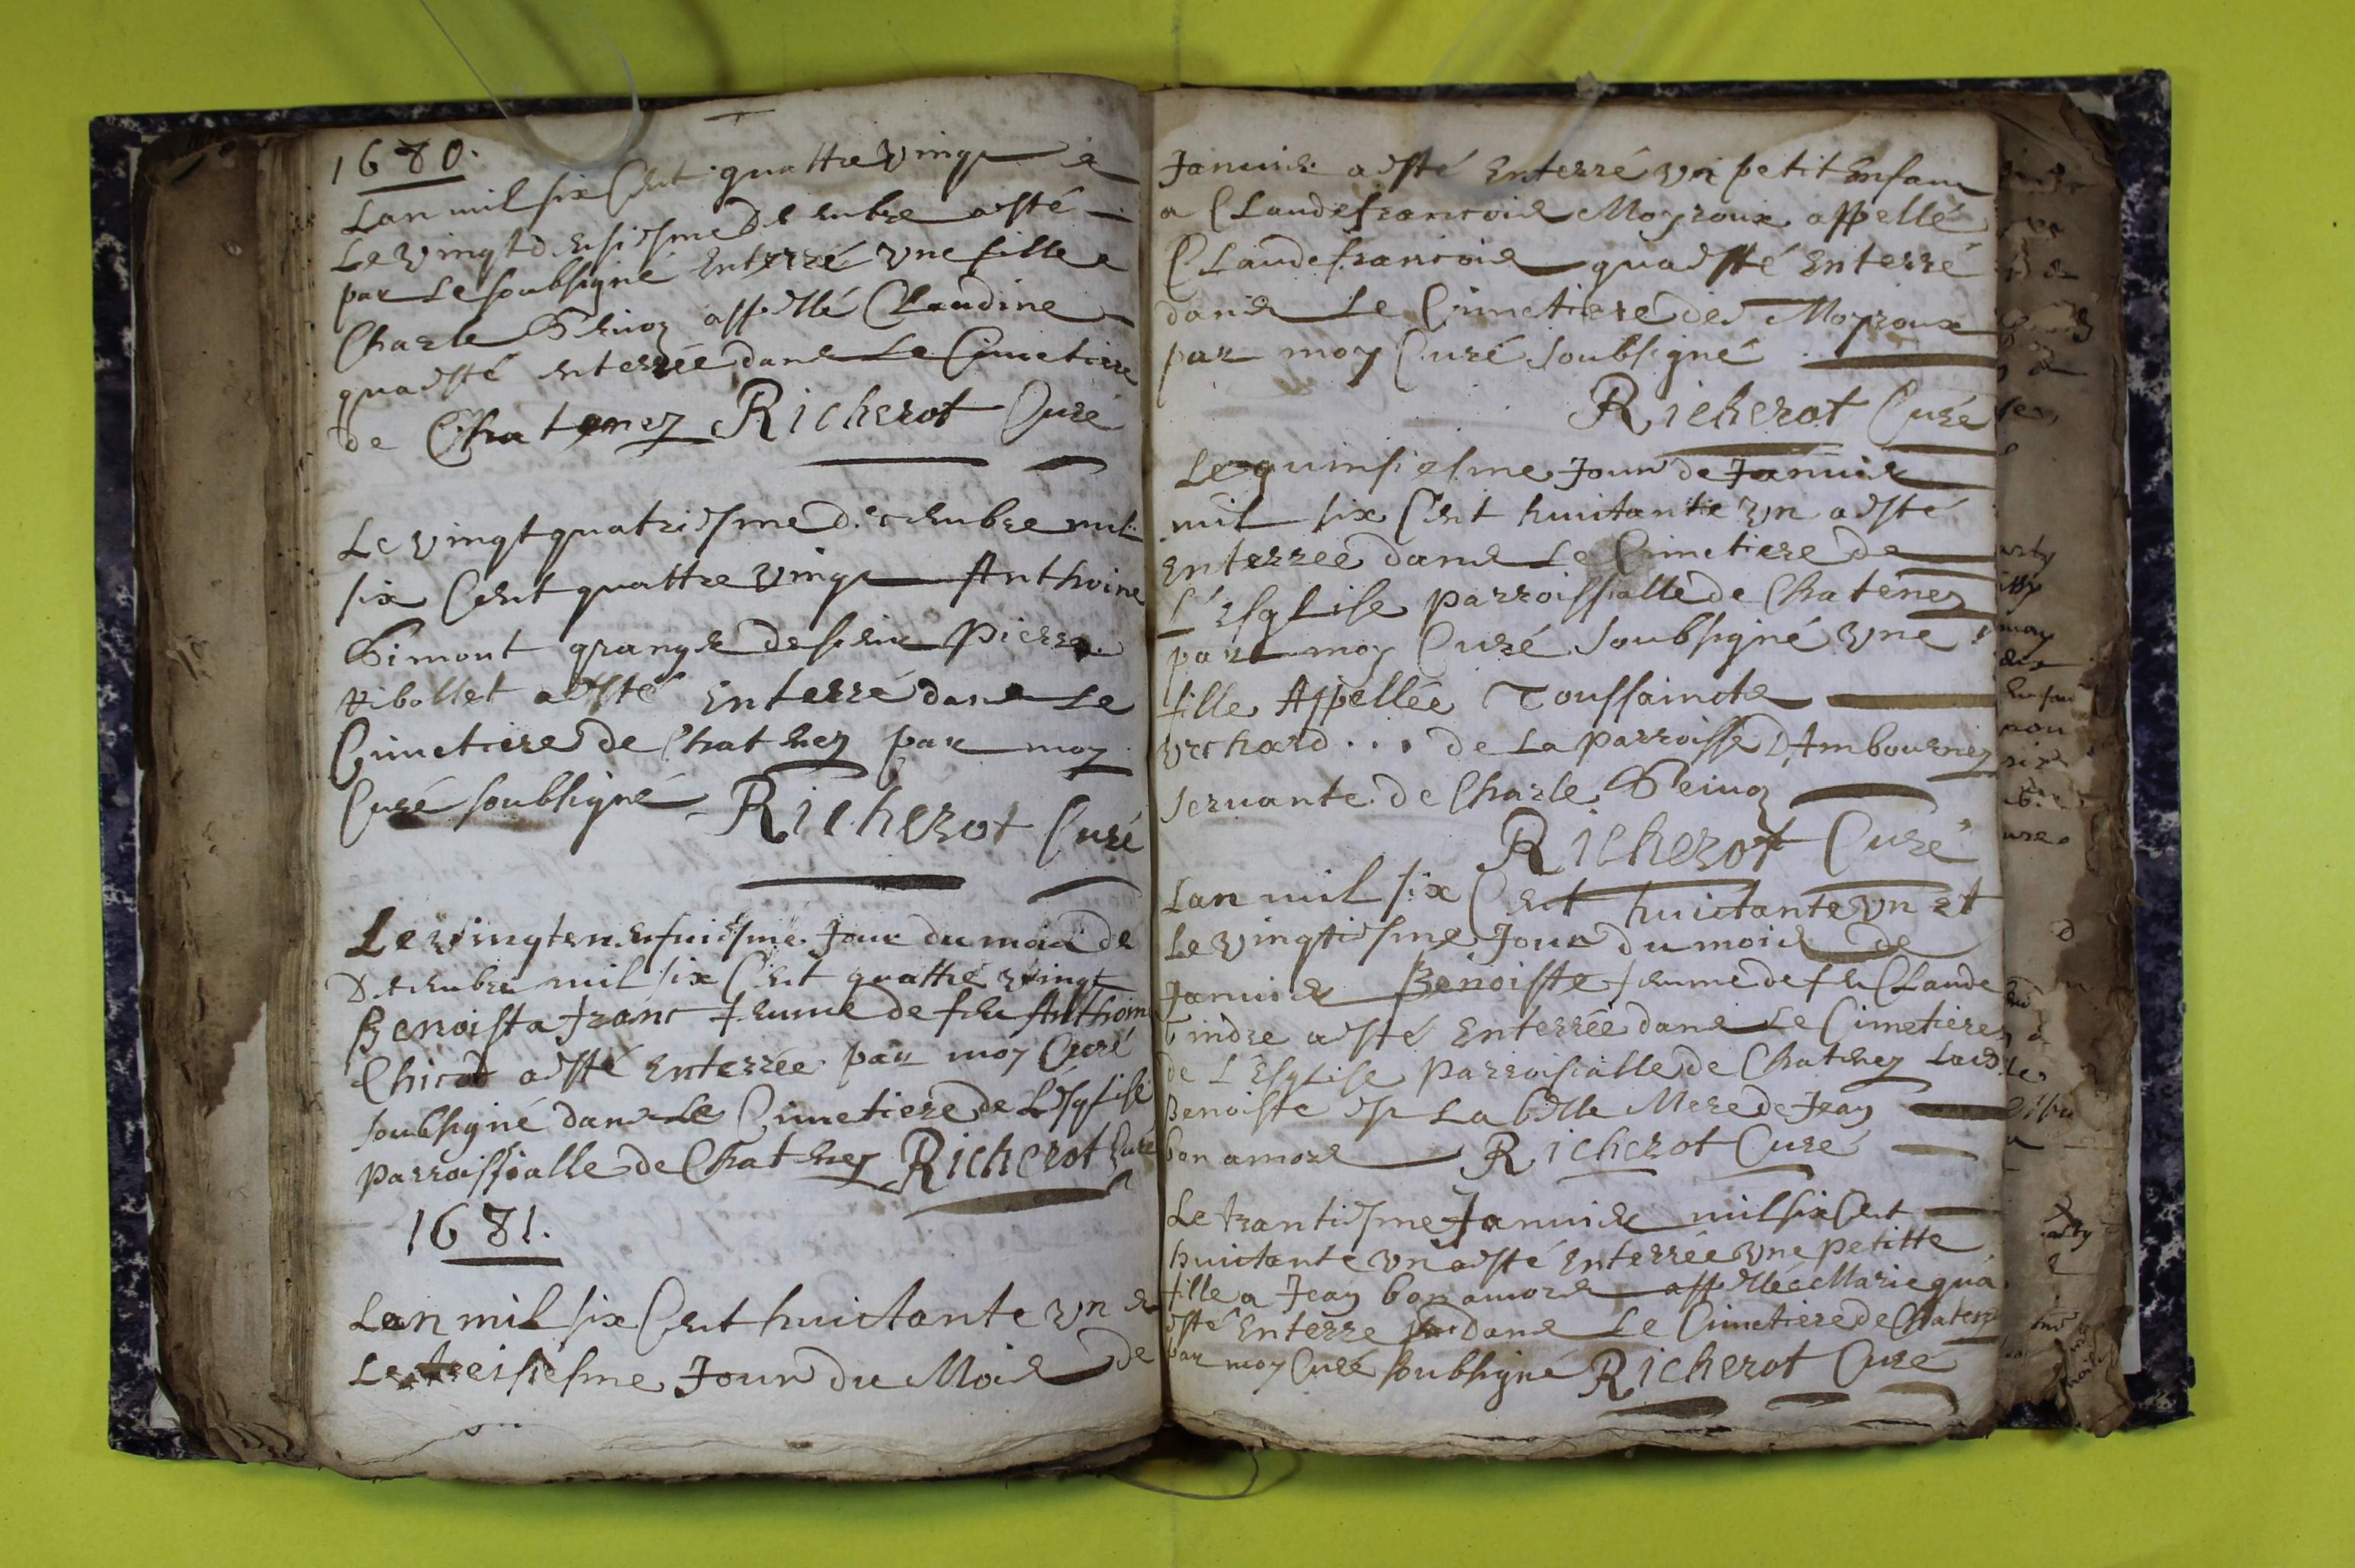 1680.
Lan mil six Cent quattre vingt e
Le vingtdeusiesme Decembre a esté
par Le soubsigné Enterré vne fille a
Charle appellé Claudine
qua esté enterrée dans Le Cimetiere
de Chatenez Richerot Curé
Le vingt quatriesme decembre mil
six Cent quattre vingt Anthoine
Simont granger de sieur Pierre
Ribollet a esté Enterré dans Le
Cimetiere de Chatenez par moy
Curé soubsigné Richerot Curé
Le vingt en neufuiesme Jour du mois de
Decembre mil six Cent quattre vingt
Benoista franc femme de feu Anthoine
Chicod a esté Enterrée par moy Curé
soubsigné dans Le Cimetiere de L'Esglise
Parroissialle de Chatenez Richerot Curé
1681.
Lan mil six Cent huictante vn e
Le treisiesme Jour du Mois de
Januier a esté Enterré vn petit Enfant
a Claude francois Moyroux appellé
Claude francois qua esté Enterré
dans Le Cimetiere des Moyroux
par moy Curé soubsigné
Richerot Curé
Le quinsiesme Jour de Januier
mil six Cent huictante vn a esté
Enterrée dans Le Cimetiere de
L'Esglise parroissialle de Chatenez
par moy Curé soubsigné vne
fille Appellée Toussaincte
vrchard ... de La parroisse D'Ambournez
seruante de Charle
Richerot Curé
Lan mil six Cent huictante vn et
Le vingtiesme Jour du mois de
Januier Benoiste femme de feu Claude
Tindre a esté Enterrée dans Le Cimetiere
de L'Esglise Parroisialle de Chatenez Lad
Benoiste est La belle Mere de Jean
bon amore Richerot Curé
Le trantiesme Januier mil six Cent
huictante vn a esté Enterrée vne petitte
fille a Jean bon amore appellée Marie qua
esté Enterre dans Le Cimetiere de Chatenez
par moy Curé soubsigné Richerot Curé